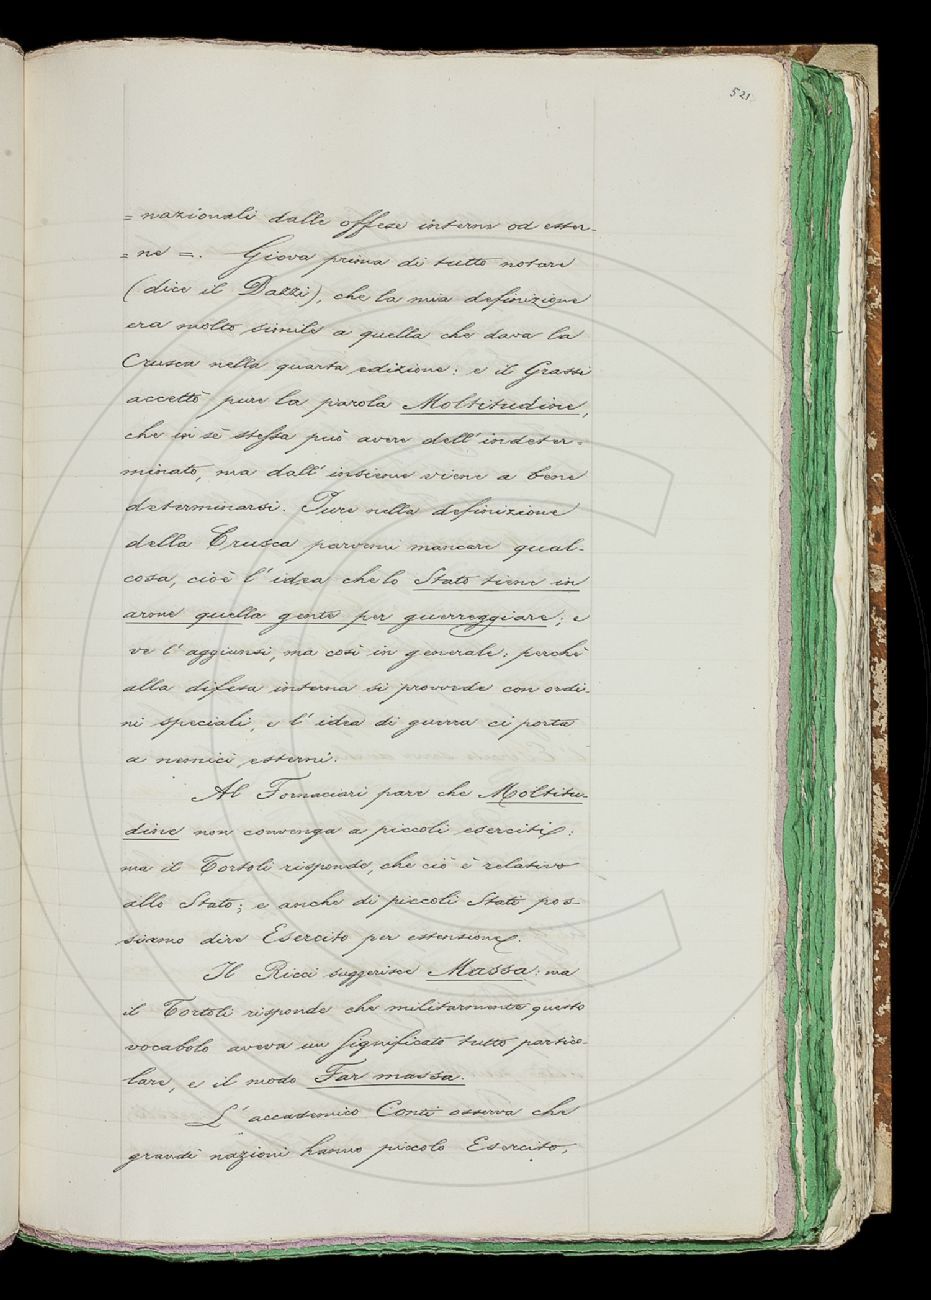 521
= nazionali dalle offese interne od ester-
= ne =. Giova prima di tutto notare
(dice il Dazzi), che la mia definizione
era molto simile a quella che dava la
Crusca nella quarta edizione: e il Grassi
accettò pure la parola Moltitudine,
che in sè stessa può avere dell'indeter-
minato, ma dall'insieme viene a bene
determinarsi. Pure nella definizione
della Crusca parvemi mancare qual-
cosa, cioè l'idea che lo Stato tiene in
arme quella gente per guerreggiare; e
ve l'aggiunsi, ma così in generale: perchè
alla difesa interna si provvede con ordi-
ni speciali, e l'idea di guerra ci porta
a nemici esterni.
Al Fornaciari pare che Moltitu-
dine non convenga a piccoli eserciti:
ma il Tortoli risponde, che ciò è relativo
allo Stato; e anche di piccoli Stati pos-
siamo dire Esercito per estensione.
Il Ricci suggerisce Massa: ma
il Tortoli risponde che militarmente questo
vocabolo aveva un significato tutto partico-
lare, e il modo Far massa.
L'accademico Conti osserva che
grandi nazioni hanno piccolo Esercito,